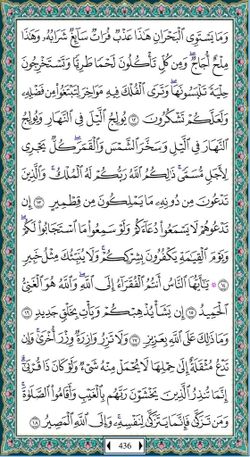 وَمَا يَسْتَوِى ٱلْبَحْرَانِ هَٰذَا عَذْبٌ فُرَاتٌ سَآئِغٌ شَرَابُهُۥ وَهَٰذَا
مِلْحٌ أُجَاجٌ ۖ وَمِن كُلٍّ تَأْكُلُونَ لَحْمًا طَرِيًّا وَتَسْتَخْرِجُونَ
حِلْيَةً تَلْبَسُونَهَا ۖ وَتَرَى ٱلْفُلْكَ فِيهِ مَوَاخِرَ لِتَبْتَغُوا۟ مِن فَضْلِهِۦ
وَلَعَلَّكُمْ تَشْكُرُونَ ١٢ يُولِجُ ٱلَّيْلَ فِى ٱلنَّهَارِ وَيُولِجُ
ٱلنَّهَارَ فِى ٱلَّيْلِ وَسَخَّرَ ٱلشَّمْسَ وَٱلْقَمَرَ كُلٌّ يَجْرِى
لِأَجَلٍ مُّسَمًّى ۚ ذَٰلِكُمُ ٱللَّهُ رَبُّكُمْ لَهُ ٱلْمُلْكُ ۚ وَٱلَّذِينَ
تَدْعُونَ مِن دُونِهِۦ مَا يَمْلِكُونَ مِن قِطْمِيرٍ ١٣ إِن
تَدْعُوهُمْ لَا يَسْمَعُوا۟ دُعَآءَكُمْ وَلَوْ سَمِعُوا۟ مَا ٱسْتَجَابُوا۟ لَكُمْ ۖ
وَيَوْمَ ٱلْقِيَٰمَةِ يَكْفُرُونَ بِشِرْكِكُمْ ۚ وَلَا يُنَبِّئُكَ مِثْلُ خَبِيرٍ
١٤ ۞ يَٰٓأَيُّهَا ٱلنَّاسُ أَنتُمُ ٱلْفُقَرَآءُ إِلَى ٱللَّهِ ۖ وَٱللَّهُ هُوَ ٱلْغَنِىُّ
ٱلْحَمِيدُ ١٥ إِن يَشَأْ يُذْهِبْكُمْ وَيَأْتِ بِخَلْقٍ جَدِيدٍ ١٦
وَمَا ذَٰلِكَ عَلَى ٱللَّهِ بِعَزِيزٍ ١٧ وَلَا تَزِرُ وَازِرَةٌ وِزْرَ أُخْرَىٰ ۚ وَإِن
تَدْعُ مُثْقَلَةٌ إِلَىٰ حِمْلِهَا لَا يُحْمَلْ مِنْهُ شَىْءٌ وَلَوْ كَانَ ذَا قُرْبَىٰٓ ۗ
إِنَّمَا تُنذِرُ ٱلَّذِينَ يَخْشَوْنَ رَبَّهُم بِٱلْغَيْبِ وَأَقَامُوا۟ ٱلصَّلَوٰةَ ۚ
وَمَن تَزَكَّىٰ فَإِنَّمَا يَتَزَكَّىٰ لِنَفْسِهِۦ ۚ وَإِلَى ٱللَّهِ ٱلْمَصِيرُ ١٨
436